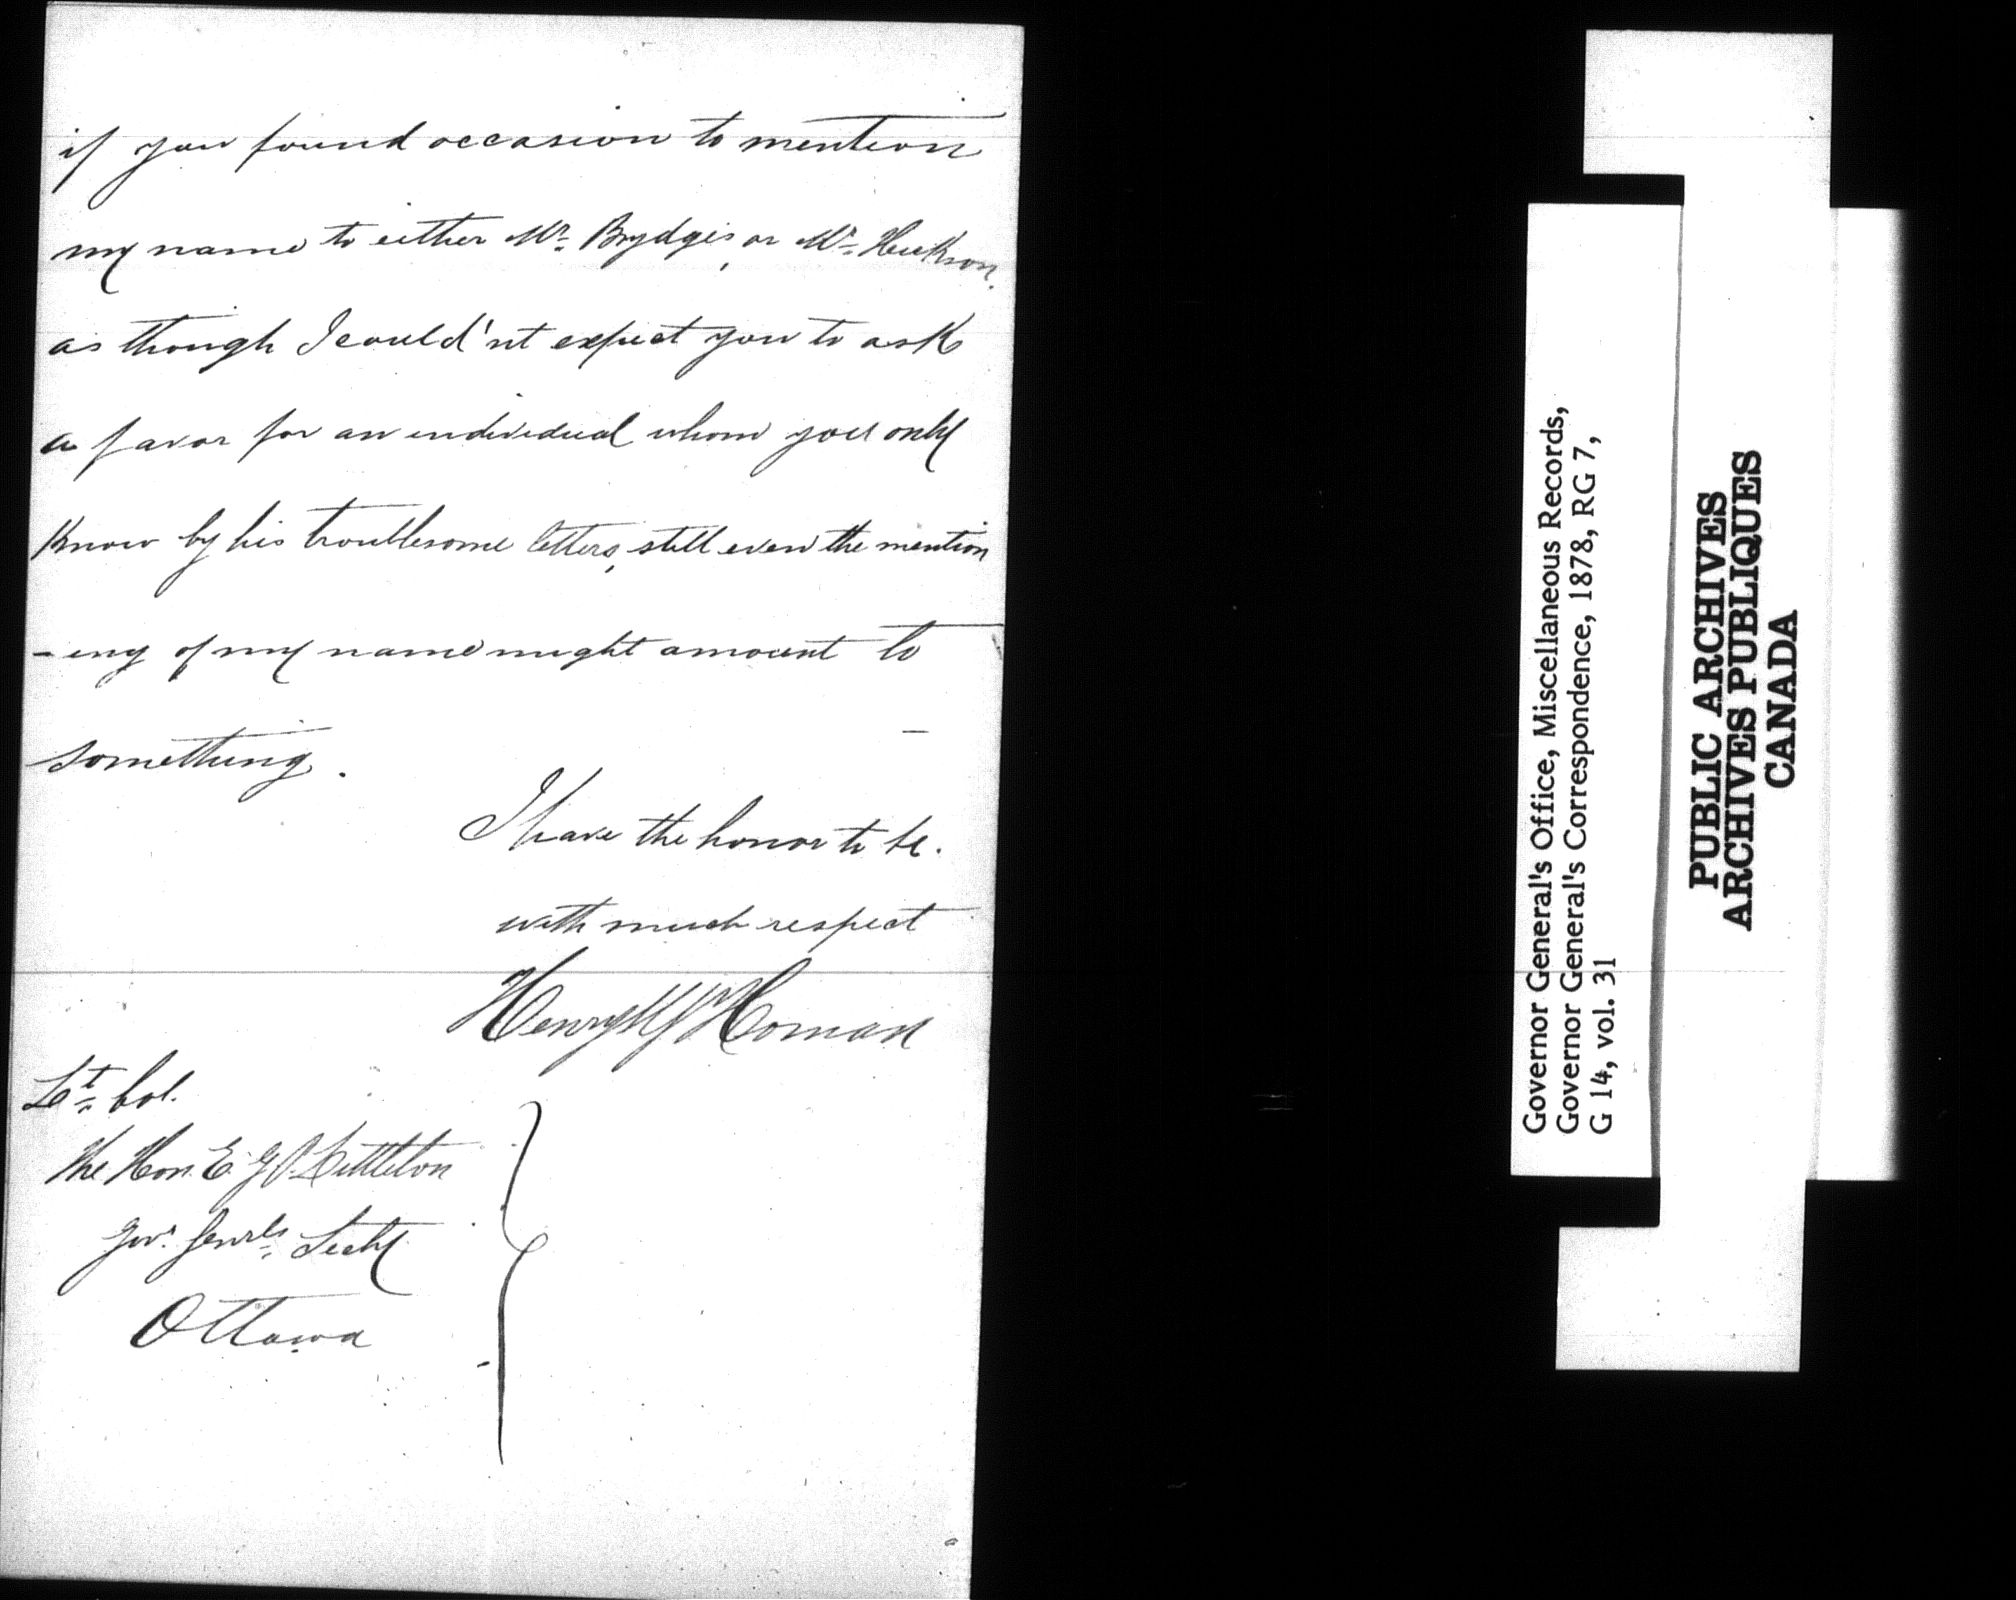 if you found occasion to mention
my name to either Mr. Brydges, or Mr. Hickson.
as though I could'nt expect you to ask
a favor for an individual whom you only
know by his troublesome letters, still even the mention
-ing of my name might amount to
something.
I have the honor to be.
with much respect
Henry Homan
Lt. Col.
The Hon. E. G. P. Littleton
Gov. Genrls Secty
Ottawa
Governor General's Office, Miscellaneous Records,
Governor General's Correspondence, 1878, RG 7,
G 14, vol. 31
PUBLIC ARCHIVES
ARCHIVES PUBLIQUES
CANADA